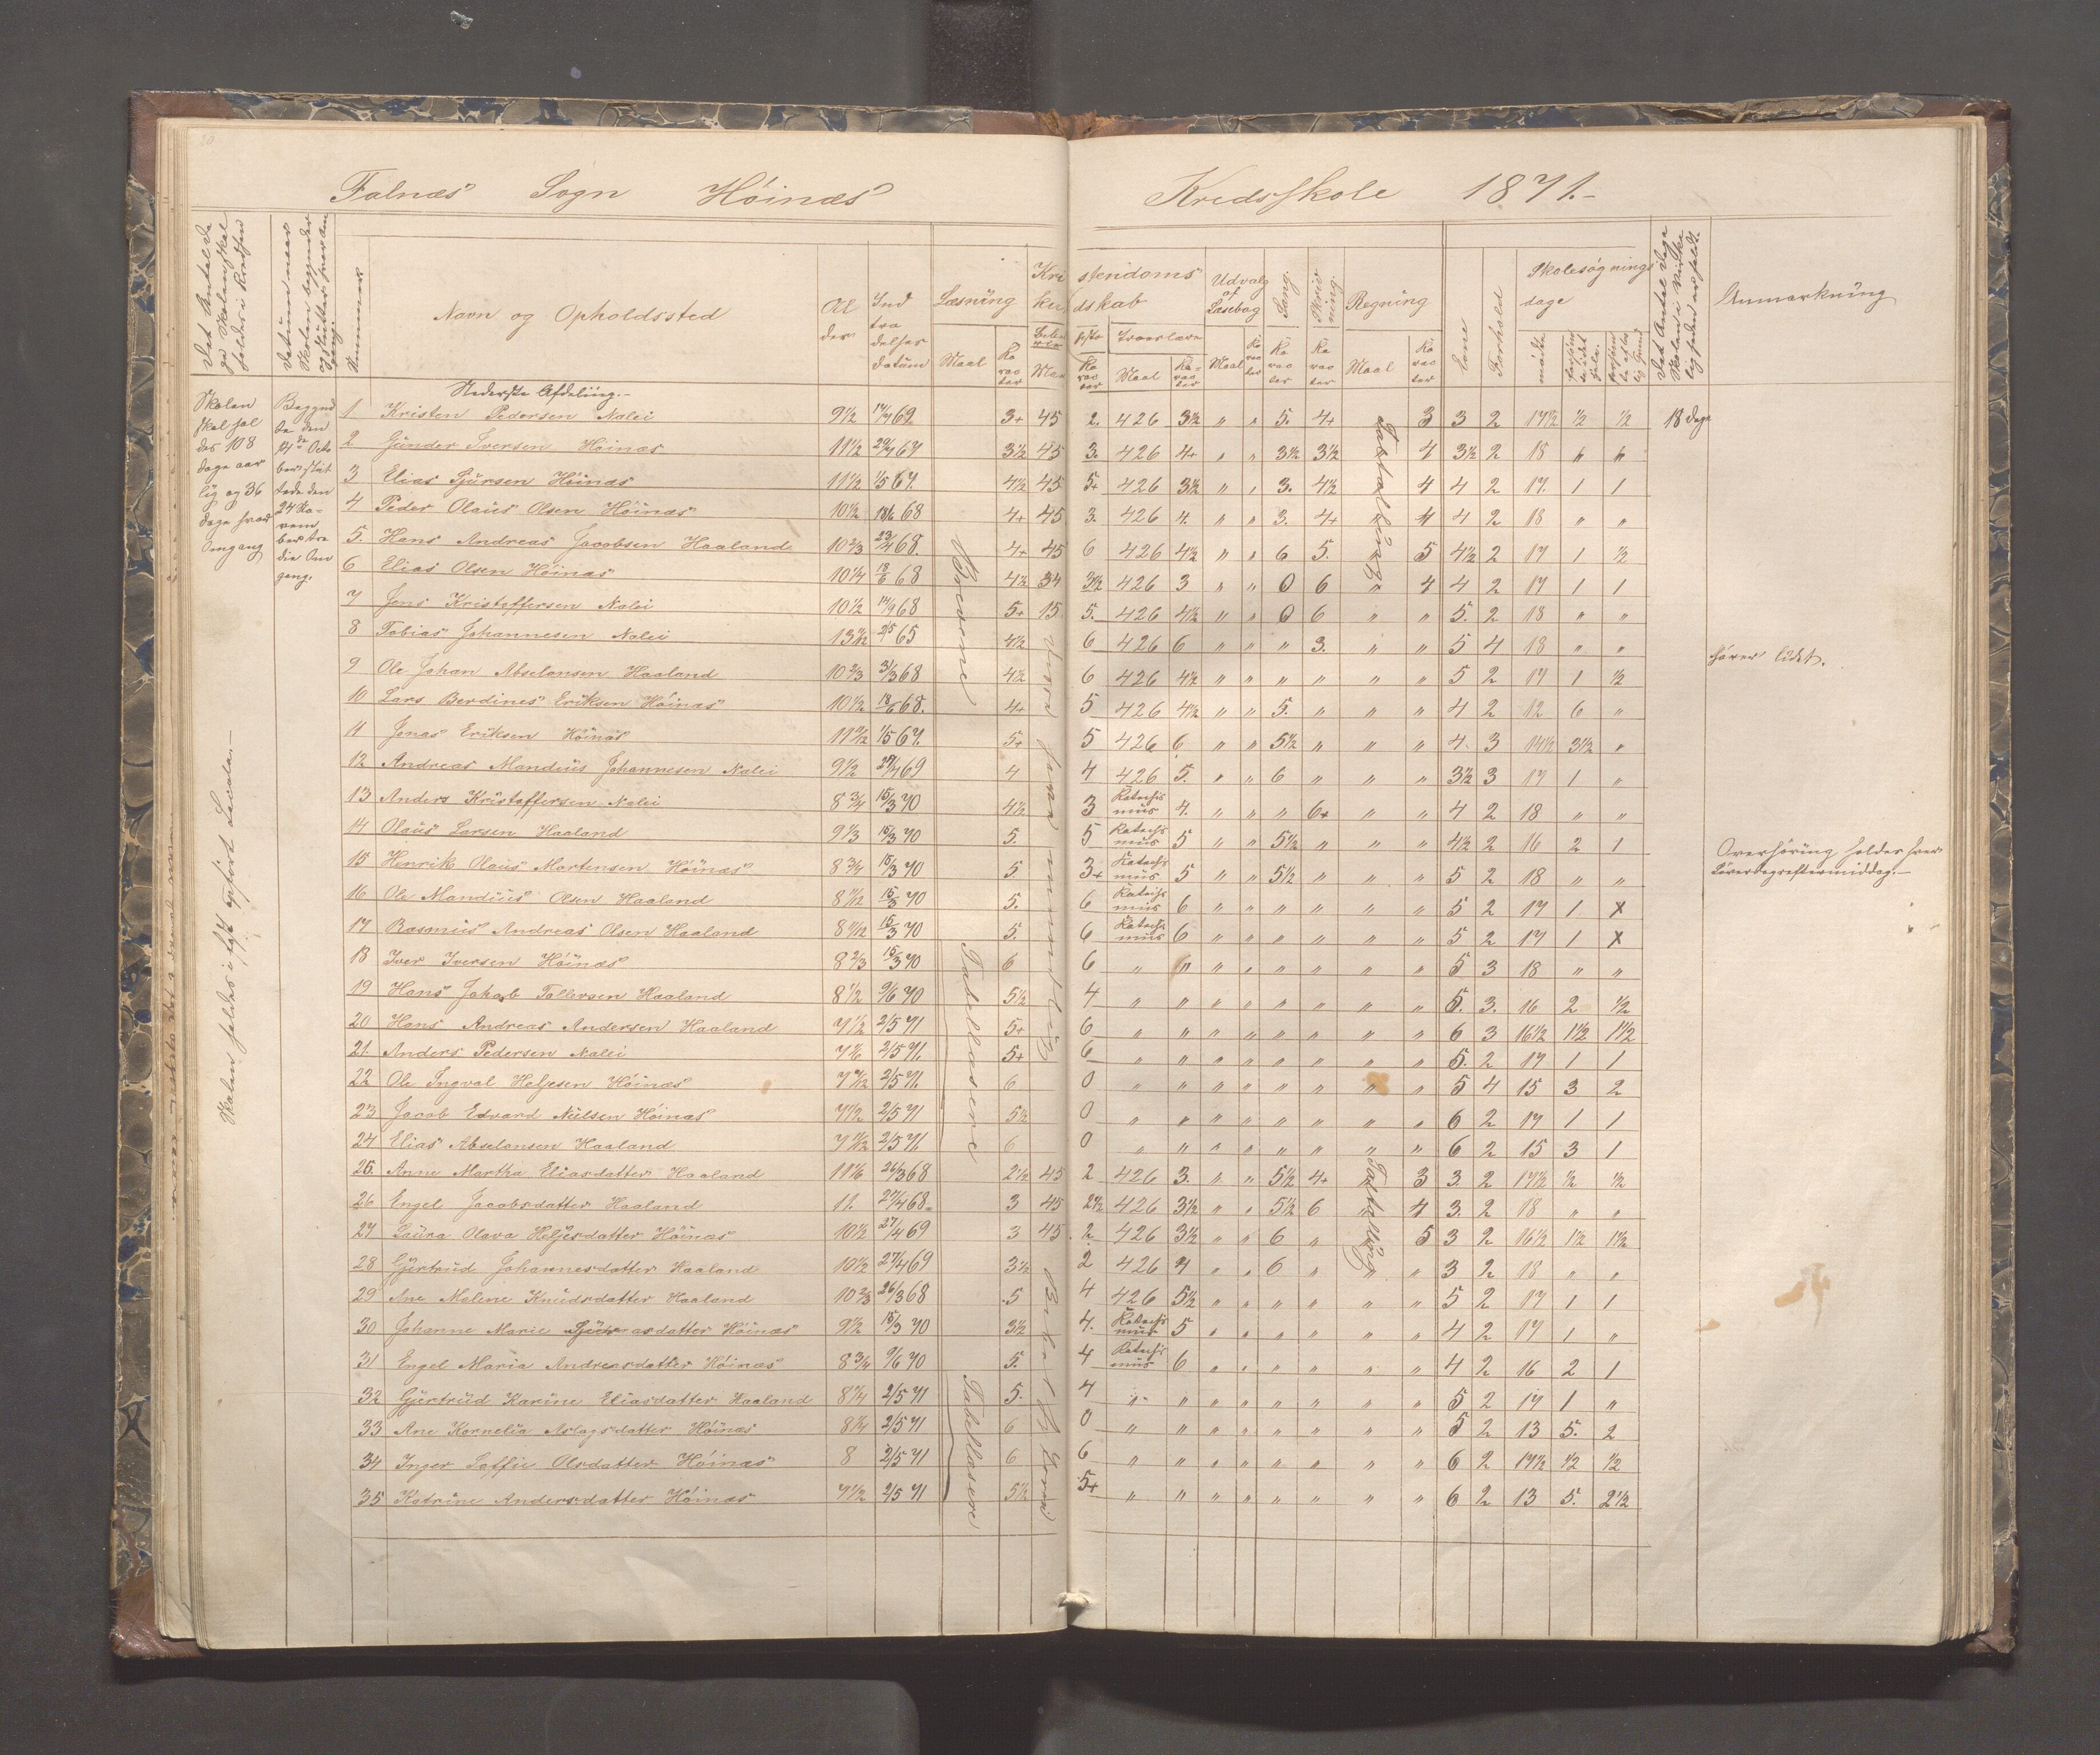 Falnæs Sogn Höinæs Kredsskole 1871.-
Det Antal Dage Skolen skal holdes i Kredsen
Datum naar Skolen begynder og slutter hver Omgang
Nummer
Navn og Opholdssted
Alder
Indtrædelses datum
Læsning
Maal
Karacter
Kristendoms Kundskab
Troeslære
Maal
Karacter
Udvalg af Læsebog
Maal
Karacter
Sang.
Karacter
Skrivning.
Karacter
Regning
Maal
Karacter
Evne
Forhold
Skolesögnings dage
mödte
Det Antal Dage Skolen i Virkeligheden er holdt.
Anmærkning
Skolen skal holdes 108 dage aarlig og 36 dage hver Omgang
Begyndte den 14de October sluttede den 24 November tredie Omgang.
Nederste Afdeling.-
1 Kristen Pedersen Nalei 9½ 69 3+ 45 2. 426 3½ " " 5. 4+ 3 3 2 17½ ½ ½ 18 dage
2 Günder Iversen Höinæs 11½ 67 3½ 45 3. 426 4+ " " 3½ 3½ 4 3½ 2 18 " "
3 Elias Sjursen Höinæs 11½ 1/5 67. 4½ 45 5+ 426 3½ " " 3. 4½ 4 4 2 17. 1 1
4 Peder Olaüs Olsen Höinæs 10½ 68 4+ 45 3. 426 4. " " 3. 4+ " 4 4 2 18 " "
5. Hans Andreas Jacobsen Haaland 10⅔ 68. 4+ 45 6 426 4½ " " 6 5. " 5 4½ 2 17 1 ½
6 Elias Olsen Höinæs 10¼ 18/6 68 4½ 34 3½ 426 3 " " 0 6 " 4 4 2 17 1 1
7 Jens Kristoffersen Nalei 10½ 14/9 68 5+ 15 5. 426 4½ " " 0 6 " " 5. 2 18 " "
8 Tobias Johannesen Nalei 2/5 65 4½ 6 426 6 " " " 3. " " 5 4 18 " " hörer lidet.
9 Ole Johan Abselonsen Haaland 10⅔ 31/3 68 4½ 6 426 4½ " " " " " " 5 2 17 1 ½
10 Lars Berdines Eriksen Höinæs 10½ 18/6 68. 4+ 5 426 4½ " " 5. " " " 4 2 12 6 "
11 Jonas Eriksen Höinæs 1/5 67. 5+ 5 426 6 " " 5½ " " " 4. 3 14½ 3½ "
12 Andreas Mandius Johannesen Nalei 9½ 27/4 69 4 4 426 5. " " 6 " " " 3½ 3 17 1 "
13 Anders Kristoffersen Nalei 8¾ 15/3 70 4½ 3 Katechismus 4. " " " 6+ " " 4 2 18 " "
14 Olaüs Larsen Haaland 9⅓ 15/3 70 5. 5 Katechismus 5 " " 5½ " " " 4½ 2 16 2 1
15 Henrik Olaus Mortensen Höinæs 8¾ 15/3 70 5. 3+ Katechismus 5 " " 5½ " " " 5 2 18 " "
Overhöring holdes hver Löverdagseftermiddag.-
16 Ole Mandiüs Olsen Haaland 15/3 70 5. 6 Katechismus 6 " " " " " " 5 2 17 1 X
17 Rasmüs Andreas Olsen Haaland 15/3 70 5. 6 Katechismus 6 " " " " " " 5 2 17 1 X
18 Iver Iversen Höinæs 8⅔ 15/3 70 6 6 " " " " " " " " 5 3 18 " "
19 Hans Jakob Tollevsen Haaland 8½ 9/6 70 5½ 4 " " " " " " " " 5. 3. 16 2 ½
20 Hans Andreas Andersen Haaland 7½ 2/5 71 5+ 6 " " " " " " " " 6 3 16½ 1½ 1½
21. Anders Pedersen Nalei 2/5 71. 5+ 6 " " " " " " " " 5. 2 17 1 1
22 Ole Ingval Heljesen Höinæs 2/5 71. 6 0 " " " " " " " " 5 4 15 3 2
23 Jacob Edvard Nilsen Höinæs 7½ 2/5 71 5½ 0 " " " " " " " " 6 2 17 1 1
24 Elias Abselonsen Haaland 2/5 71. 6 0 " " " " " " " " 6 2 15 3 1
25. Anne Martha Eliasdatter Haaland 26/3 68 2½ 45 2 426 3. " " 5½ 4+ 3 3. 2 17½ ½ ½
26 Engel Jacobsdatter Haaland 11. 27/4 68. 3 45 2½ 426 3½ " " 5½ 6 " 4 3. 2 18 " "
27 Laüra Olava Heljesdatter Höinæs 10½ 27/4 69 3 45. 2. 426 3½ " " 6 " 5 3 2 16½ 1½ 1½
28 Gjertrud Johannesdatter Haaland 10½ 27/4 69 3½ 2 426 4 " " 6 " " " 3 2 18 " "
29 Ane Malene Knüdsdatter Haaland 10⅔ 26/3 68 5 4 426 5½ " " " " " " 5 2 17 1 1
30 Johanne Marie Höinæs 9½ 15/3 70 3½ 4. Katechismus 5 " " " " " " 4 2 17 1 "
31 Engel Maria Andreasdatter Höinæs 8¾ 9/6 70 5. 4 Katechismus 6 " " " " " " 4 2 16 2 1
32 Gjertrüd Karine Eliasdatter Haaland 8¼ 2/5 71 5. 4 " " " " " " " " 5 2 17 1 "
33 Ane Kornelia Aslagsdatter Höinæs 8¼ 2/5 71 6 0 " " " " " " " " 5 2 13 5. 2
34 Inger Soffie Olsdatter Höinæs 8 2/5 71 6 6 " " " " " " " " 6 2 17½ ½ ½
35 Katrine Andersdatter Höinæs 7½ 2/5 71 5½ 5+ " " " " " " " " 6 2 13 5. 2½
Tabellæsere
Tabellæsere
Tavleregning
Skolen holdes i fast opfört Locale.-